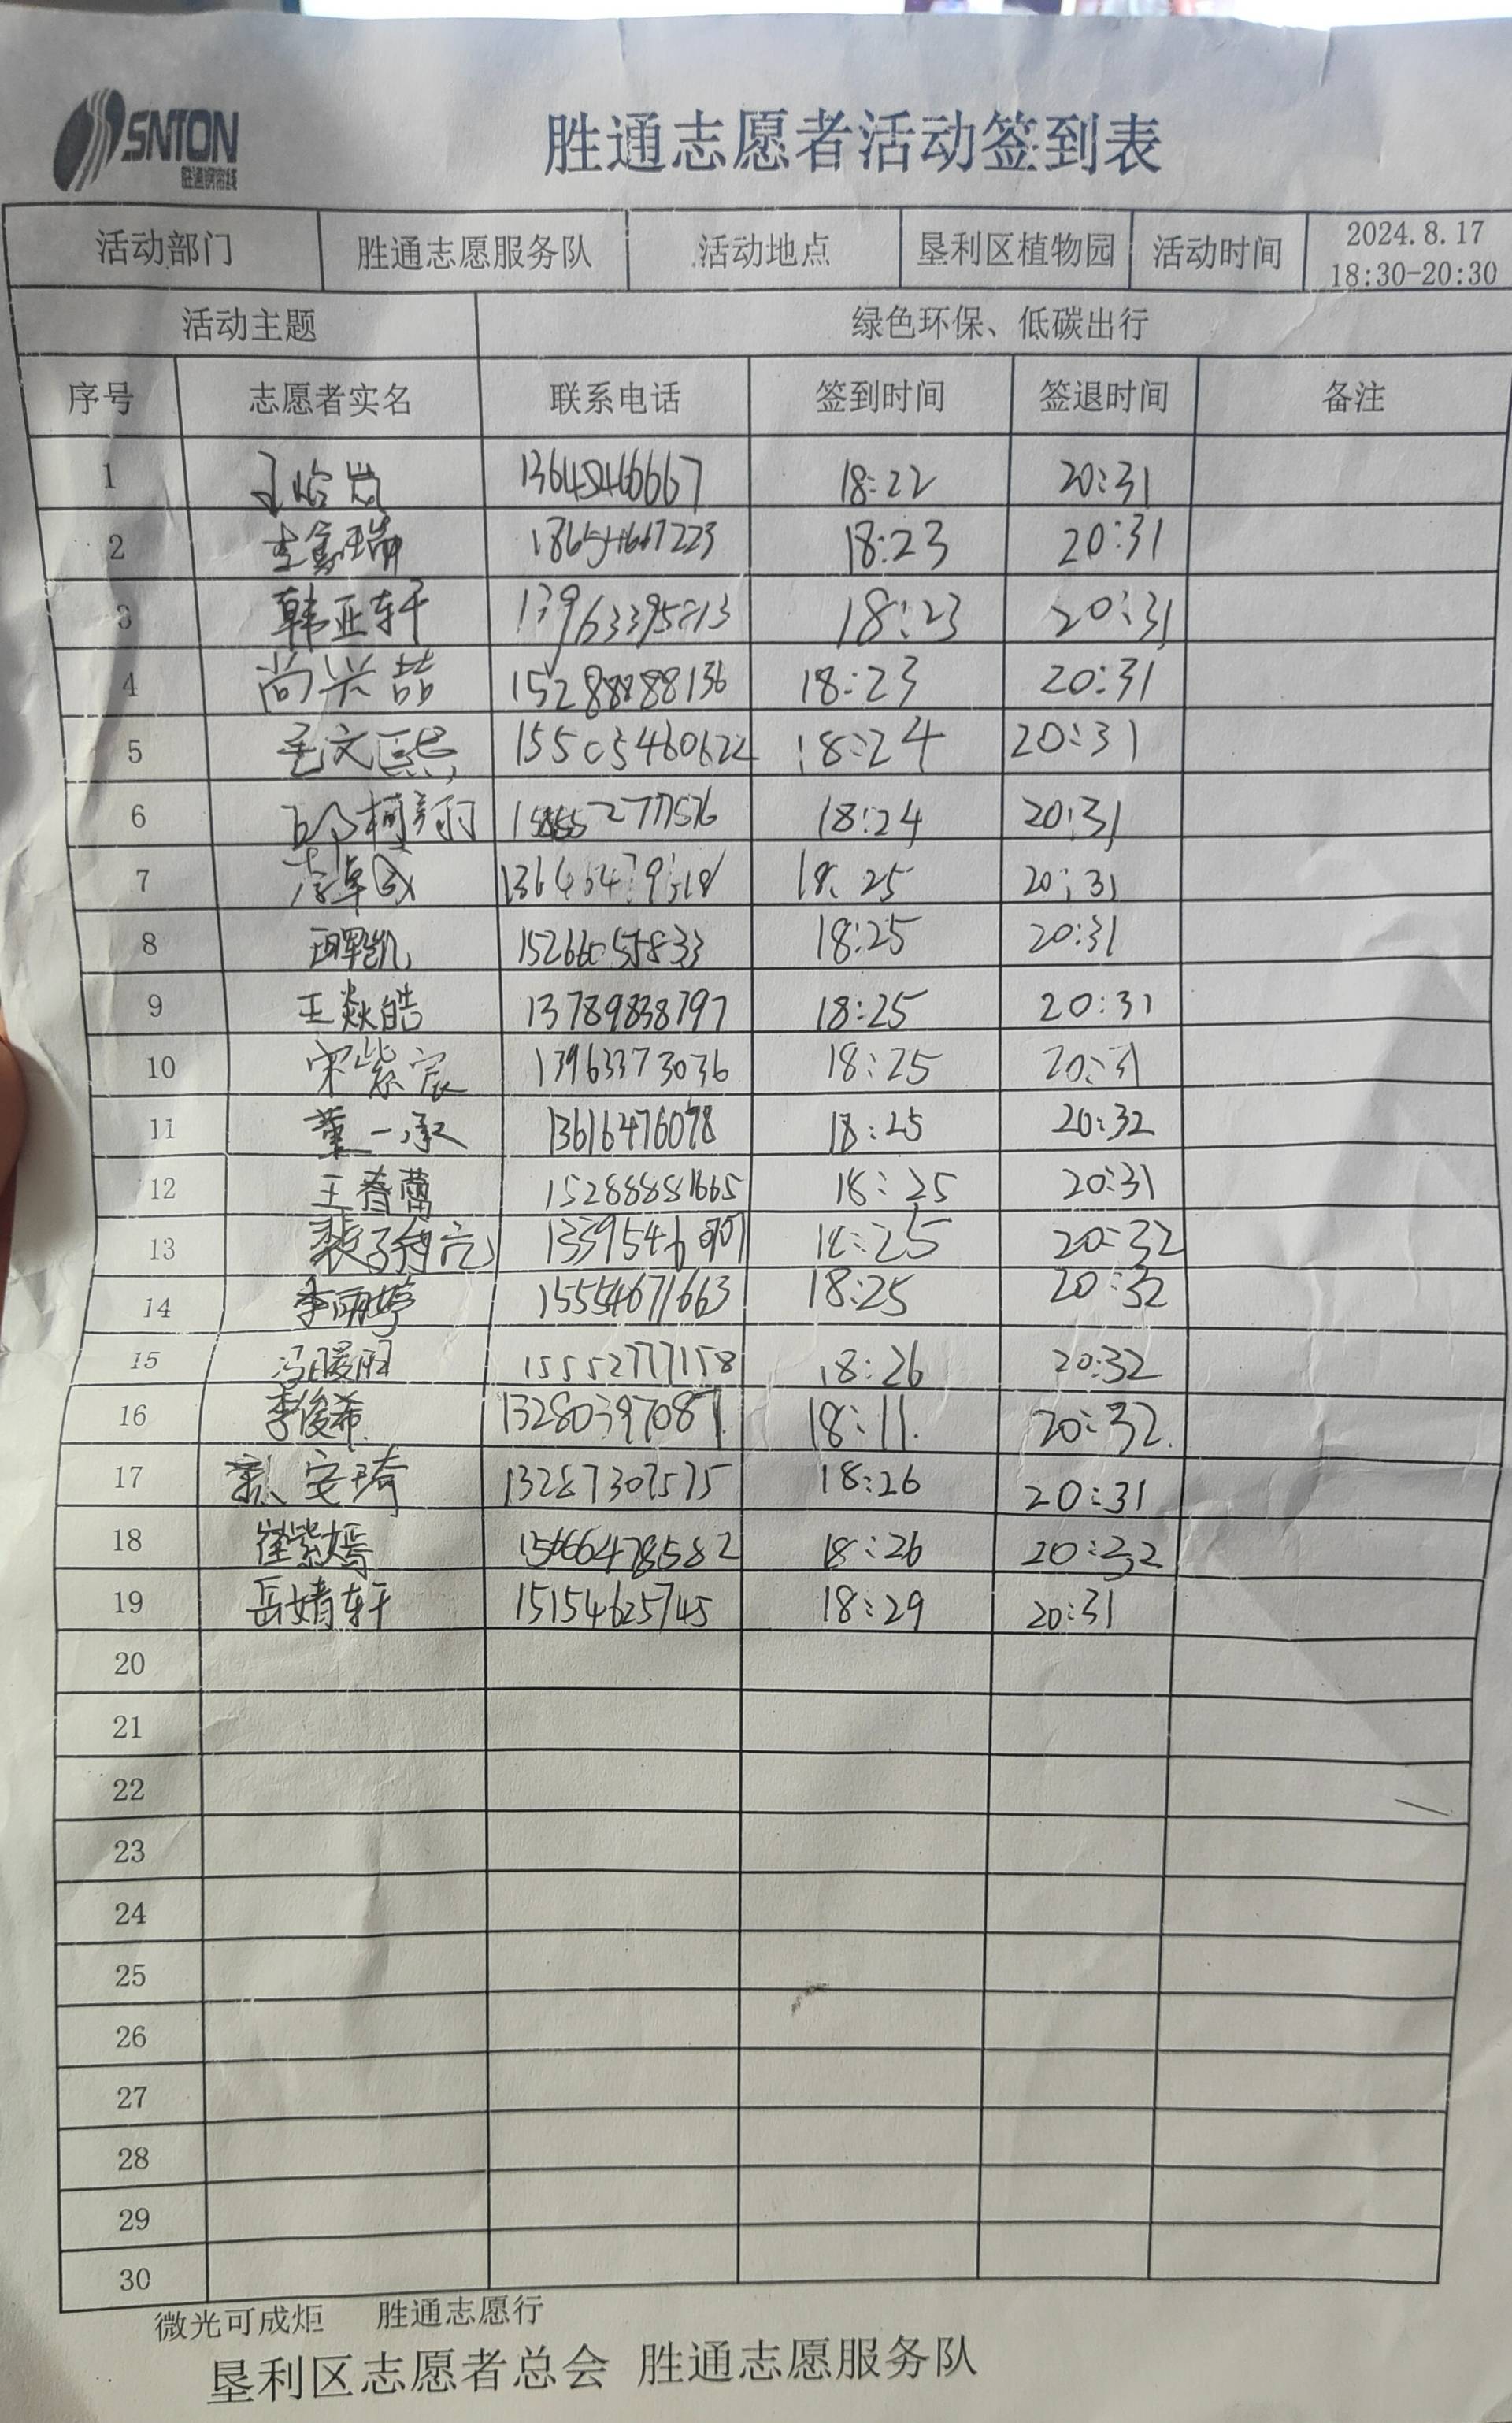 SNTON
胜通钢帘线
胜通志愿者活动签到表
活动部门 胜通志愿服务队 活动地点 垦利区植物园 活动时间 2024.8.17 18:30-20:30
活动主题 绿色环保、低碳出行
序号 志愿者实名 联系电话 签到时间 签退时间 备注
1 18:22 20:31
2 18:23 20:31
3 韩亚轩 18:23 20:31
4 尚兴喆 15288888136 18:23 20:31
5 毛文熙 15505460622 18:24 20:31
6 18:24 20:31
7 18:25 20:31
8 18:25 20:31
9 王焱皓 13789838797 18:25 20:31
10 宋紫宸 13963373036 18:25 20:31
11 董一承 13616476098 18:25 20:32
12 王春蕾 15288881665 18:25 20:31
13 18:25 20:32
14 李雨婷 15554671663 18:25 20:32
15 15552777158 18:26 20:32
16 李俊希 13280397087 18:11 20:32
17 18:26 20:31
18 崔紫嫣 15666478582 18:26 20:32
19 岳婧轩 15154625745 18:29 20:31
20
21
22
23
24
25
26
27
28
29
30
微光可成炬 胜通志愿行
垦利区志愿者总会 胜通志愿服务队